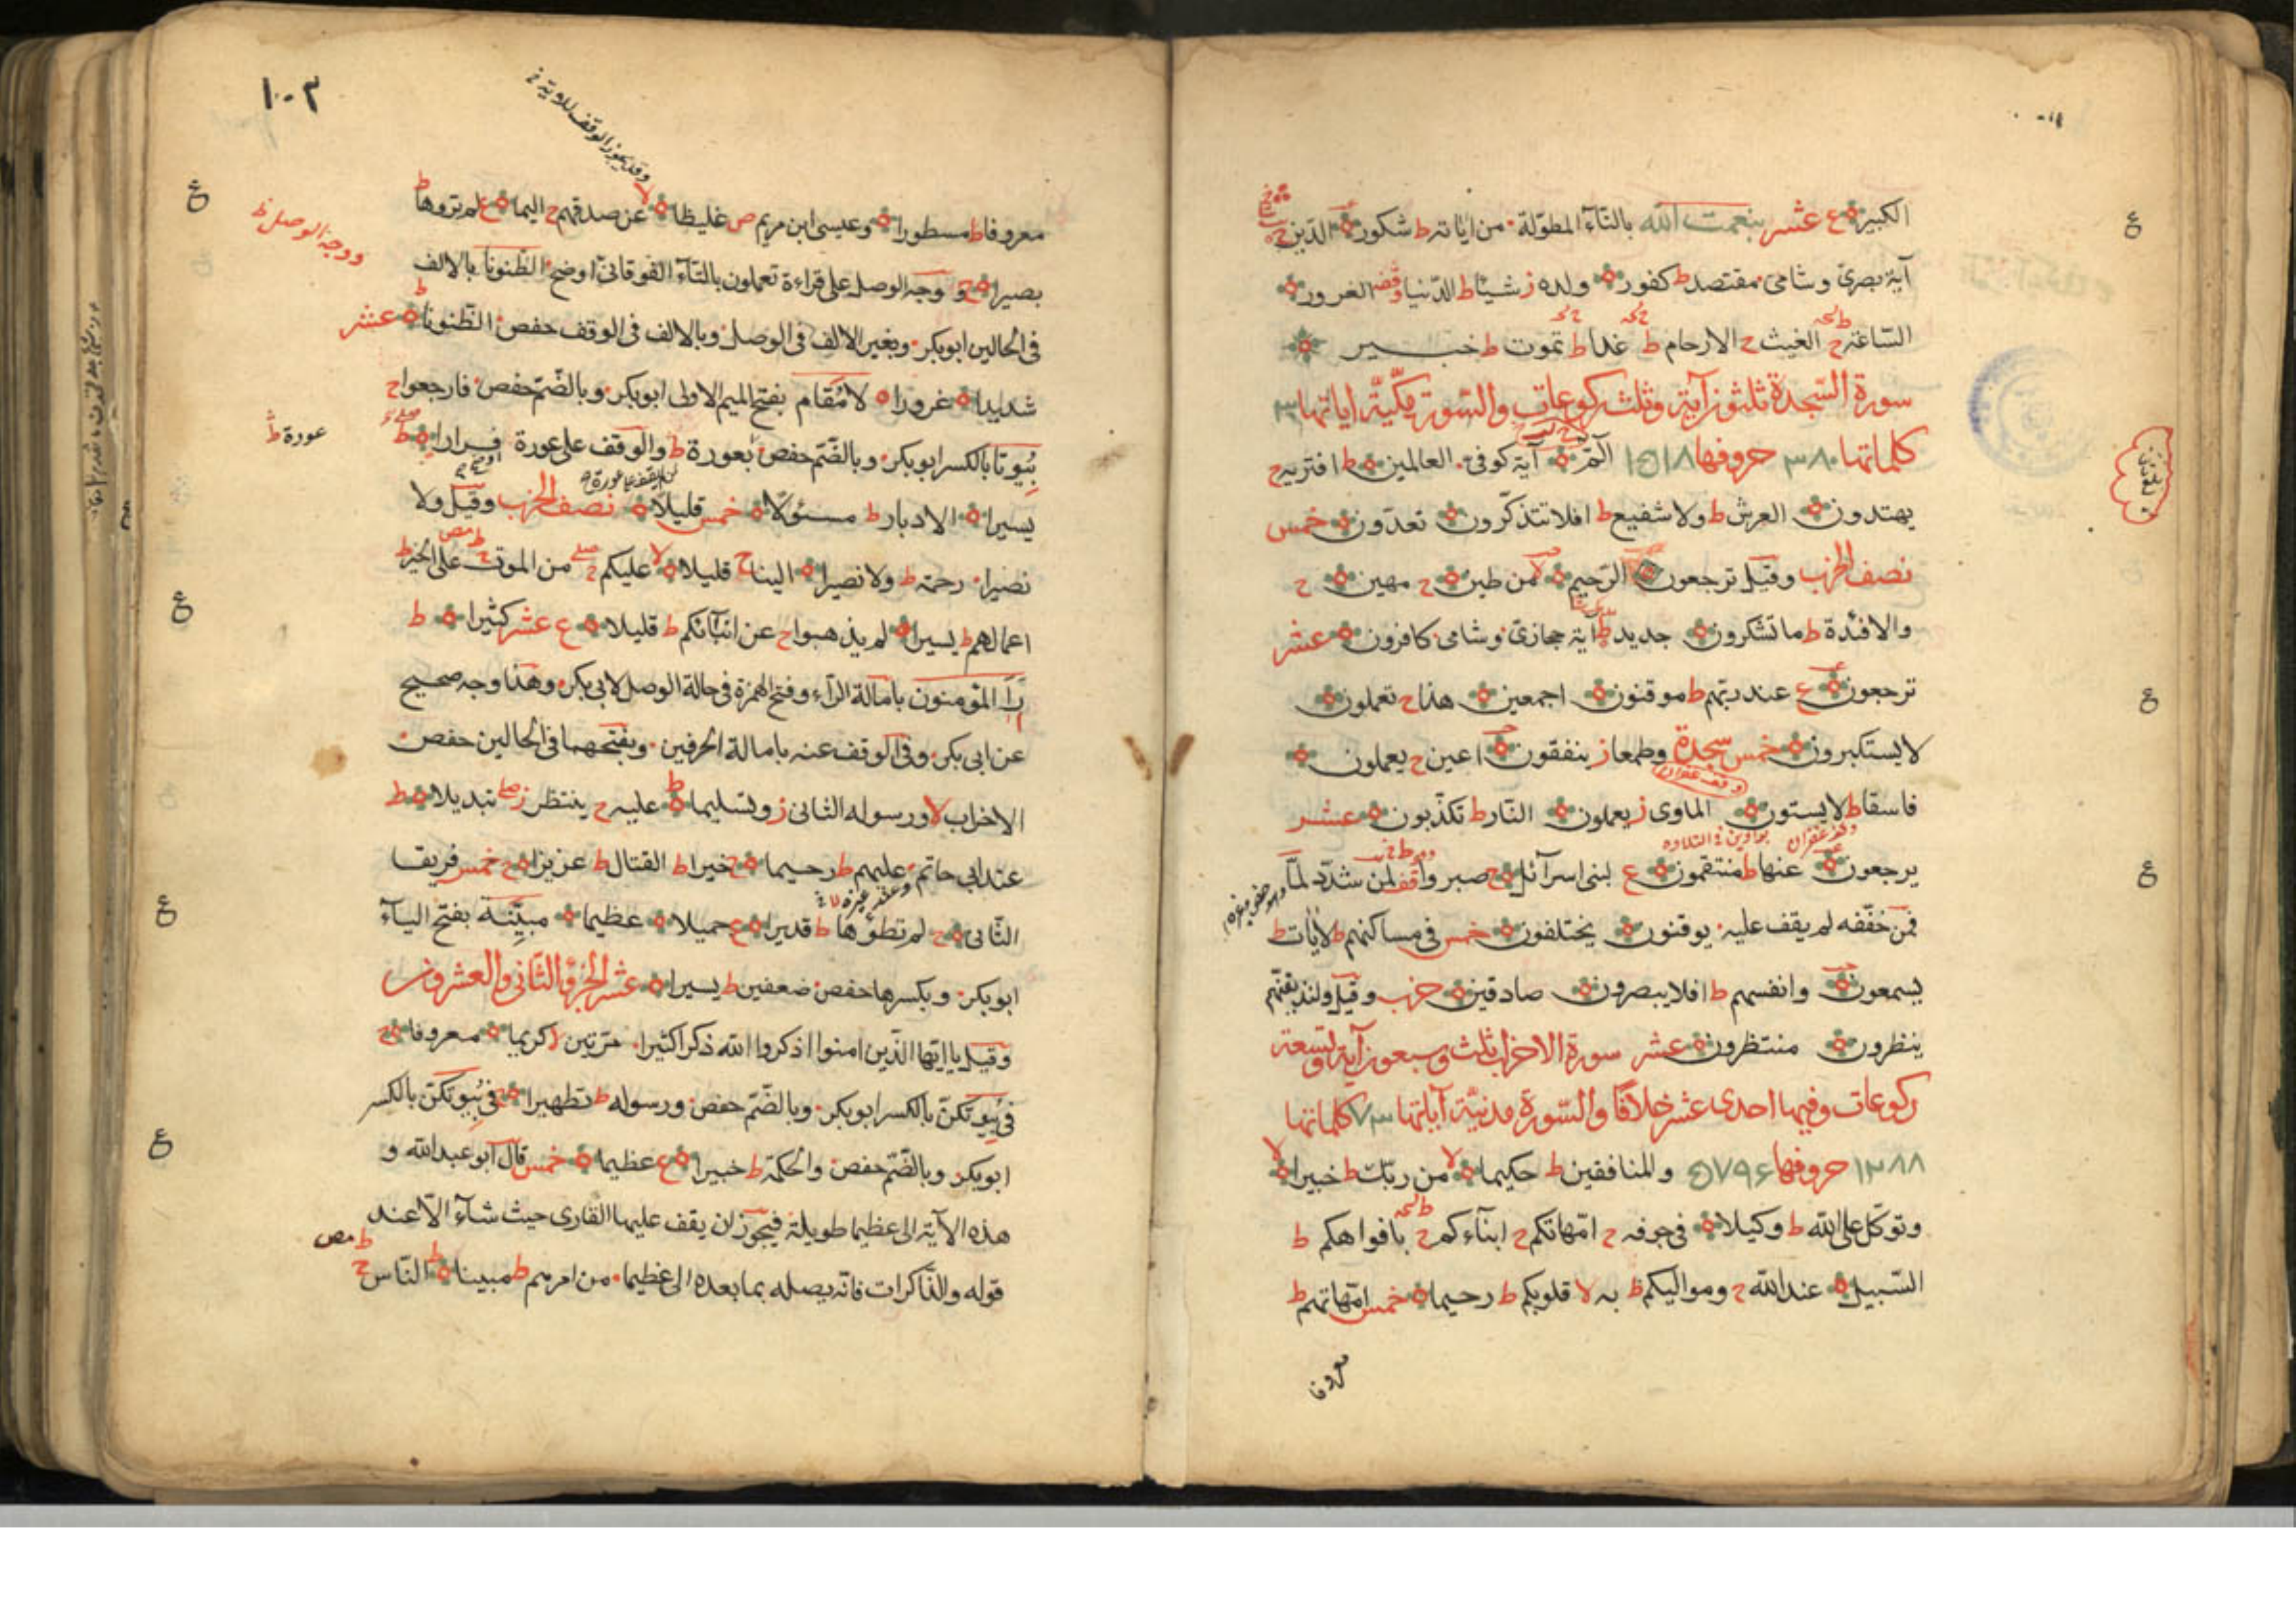 الكبير ع عشر بنعمت الله بالتاء المطولة من اياته ط شكور الدين
آية بصرى وشامى مقتصد ط كفور ولده ز شيئا ط الدنيا وقفه الغرور
الساعة ح الغيث ح الارحام ط غدا ط تموت ط خبير
سورة السجدة ثلثون آية وثلث ركوعات والسورة مكية اياتها ٣٠
كلماتها ٣٨٠ حروفها ١٥١٨ الم آية كوفى العالمين ط افتريه ح
يهتدون العرش ط ولا شفيع ط افلا تتذكرون تعدون خمس
نصف الحزب وقيل ترجعون الرحيم من طين ح مهين ح
والافئدة ط ما تشكرون جديد ط آية حجازى وشامى كافرون عشر
ترجعون ع عند ربهم ط موقنون اجمعين هذا ح تعملون
لا يستكبرون خمس سجدة وطمعا ز ينفقون اعين ح يعملون
وقف غفران
فاسقا ط لا يستون الماوى ز يعملون النار ط تكذبون عشر
وقف غفران بواوين فى التلاوه
يرجعون عنها ط منتقمون ع لبنى اسرآئيل ح صبروا قف لمن شدد لما
فمن خففه لم يقف عليه يوقنون يختلفون خمس فى مساكنهم ط لآيات ط
يسمعون وانفسهم ط افلا يبصرون صادقين حزب وقيل ولنذيقنهم
ينظرون منتظرون عشر سورة الاحزاب ثلث وسبعون آية وتسعة
ركوعات وفيها احدى عشر خلافا والسورة مدنية آياتها ٧٣ كلماتها
١٢٨٨ حروفها ٥٧٩٦ والمنافقين ط حكيما لا من ربك ط خبيرا لا
وتوكل على الله ط وكيلا فى جوفه ح امهاتكم ح ابنآءكم ح بافواهكم ط
السبيل عند الله ح ومواليكم ط به لا قلوبكم ط رحيما خمس امهاتهم ط
معروفا
١٠٣
وقد يجوز الوقف للاية
معروفا ط مسطورا وعيسى ابن مريم ص غليظا لا عن صدقهم ح اليما ع لم تروها ط
ووجه الوصل ظ
بصيرا ح ووجه الوصل على قراءة تعملون بالتآء الفوقانى اوضح الظنونا بالالف
فى الحالين ابوبكر وبغير الالف فى الوصل وبالالف فى الوقف حفص الظنونا ط عشر
شديدا غرورا لا مقام بفتح الميم الاولى ابوبكر وبالضم حفص فارجعوا ح
عورة ط
بيوتا بالكسر ابوبكر وبالضم حفص بعورة ط والوقف على عورة فرارا ط
يسيرا الادبار ط مسئولا خمس قليلا نصف الحزب وقيل ولا
نصيرا رحمة ط ولا نصيرا الينا ح قليلا لا عليكم ح من الموت ح على الخير ط
اعمالهم ط يسيرا لم يذهبوا ح عن انبآئكم ط قليلا ع عشر كثيرا ط
رآ المؤمنون بامالة الرآء وفتح الهمزة فى حالة الوصل لابى بكر وهذا وجه صحيح
عن ابى بكر وفى الوقف عنه بامالة الحرفين وبفتحهما فى الحالين حفص
الاحزاب لا ورسوله الثانى ز وتسليما ط عليه ح ينتظر ز صلى تبديلا ط
عند ابى حاتم عليهم ط رحيما ح خيرا ط القتال ط عزيزا ح خمس فريقا
الثانى ح لم تطؤها ط قديرا ع جميلا عظيما مبينة بفتح اليآء
ابوبكر وبكسرها حفص ضعفين ط يسيرا عشر الجزؤ الثانى والعشرون
وقيل ياايها الذين امنوا اذكروا الله ذكرا كثيرا مرتين لا كريما معروفا ح
فى بيوتكن بالكسر ابوبكر وبالضم حفص ورسوله ط تطهيرا ح فى بيوتكن بالكسر
ابوبكر وبالضم حفص والحكمة ط خبيرا ع عظيما خمس قال ابو عبد الله و
هذه الآية الى عظيما طويلة فيجوز ان يقف عليها القارى حيث شآء الا عند
قوله والذاكرات فانه يصله بما بعده الى عظيما من امرهم ط مبينا ط الناس ح